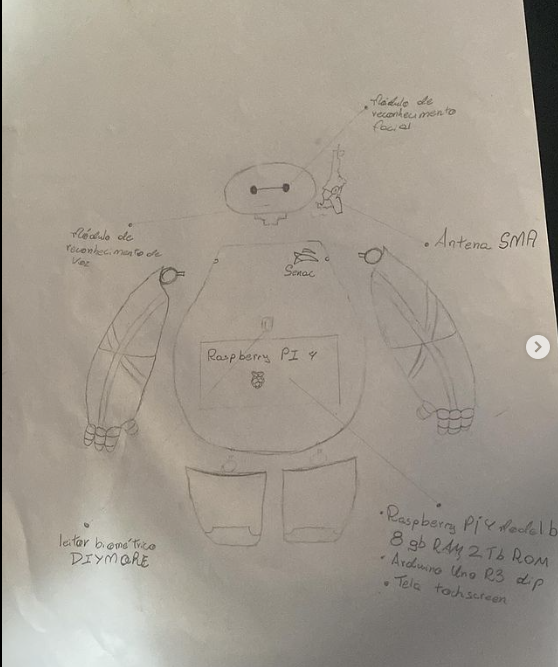 Módulo de
reconhecimento
facial
Módulo de
reconhecimento de
Voz
Antena SMA
Senac
Raspberry PI 4
leitor biométrico
DIYMORE
•Raspberry Pi 4 Model b
8 gb RAM 2 Tb ROM
•Arduino Uno R3 dip
•Tela tochscreen